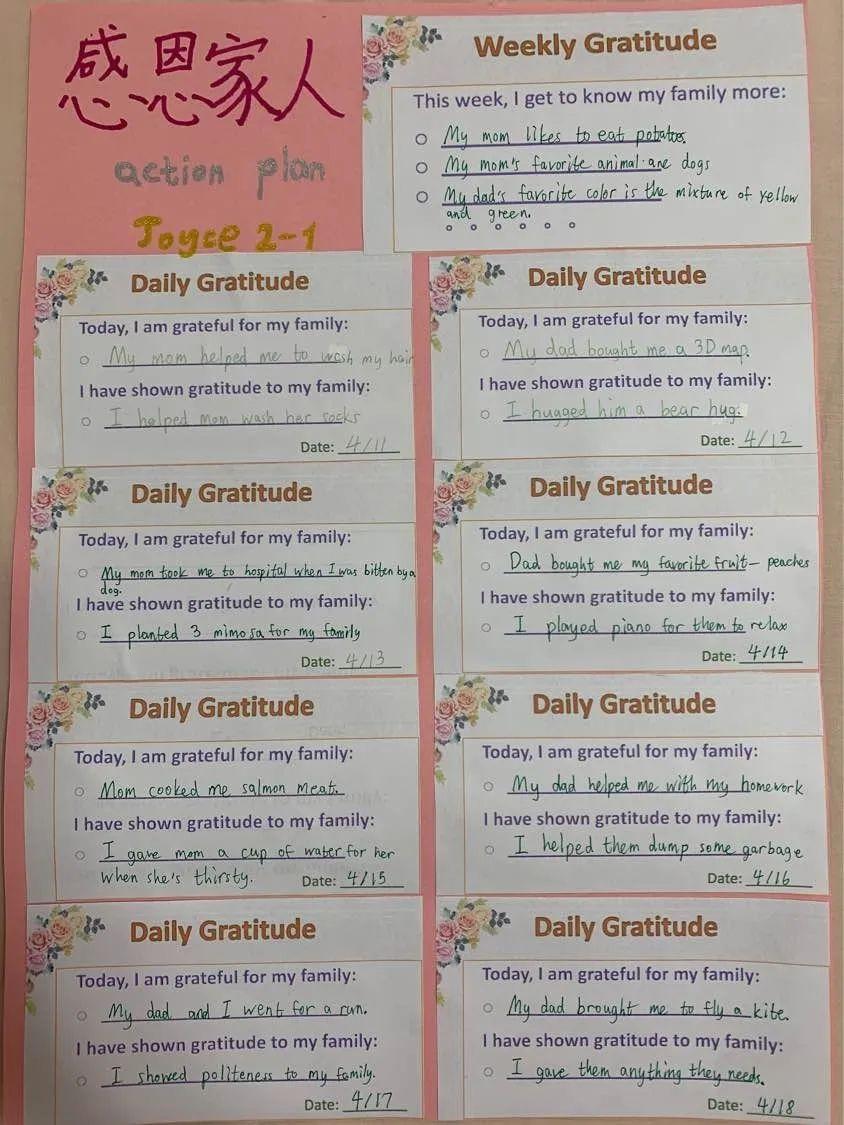 感恩家人
action plan
Joyce 2-1
Weekly Gratitude
This week, I get to know my family more:
My mom likes to eat potatoes.
My mom's favorite animal are dogs
My dad's favorite color is the mixture of yellow
and green.
Daily Gratitude
Today, I am grateful for my family:
My mom helped me to wash my hair
I have shown gratitude to my family:
I helped mom wash her socks
Date: 4/11
Daily Gratitude
Today, I am grateful for my family:
My dad bought me a 3D map.
I have shown gratitude to my family:
I hugged him a bear hug.
Date: 4/12
Daily Gratitude
Today, I am grateful for my family:
My mom took me to hospital when I was bitten by a
dog.
I have shown gratitude to my family:
I planted 3 mimosa for my family
Date: 4/13
Daily Gratitude
Today, I am grateful for my family:
Dad bought me my favorite fruit— peaches
I have shown gratitude to my family:
I played piano for them to relax
Date: 4/14
Daily Gratitude
Today, I am grateful for my family:
Mom cooked me salmon meat.
I have shown gratitude to my family:
I gave mom a cup of water for her
when she's thirsty.
Date: 4/15
Daily Gratitude
Today, I am grateful for my family:
My dad helped me with my homework
I have shown gratitude to my family:
I helped them dump some garbage
Date: 4/16
Daily Gratitude
Today, I am grateful for my family:
My dad and I went for a run.
I have shown gratitude to my family:
I showed politeness to my family.
Date: 4/17
Daily Gratitude
Today, I am grateful for my family:
My dad brought me to fly a kite.
I have shown gratitude to my family:
I gave them anything they needs.
Date: 4/18